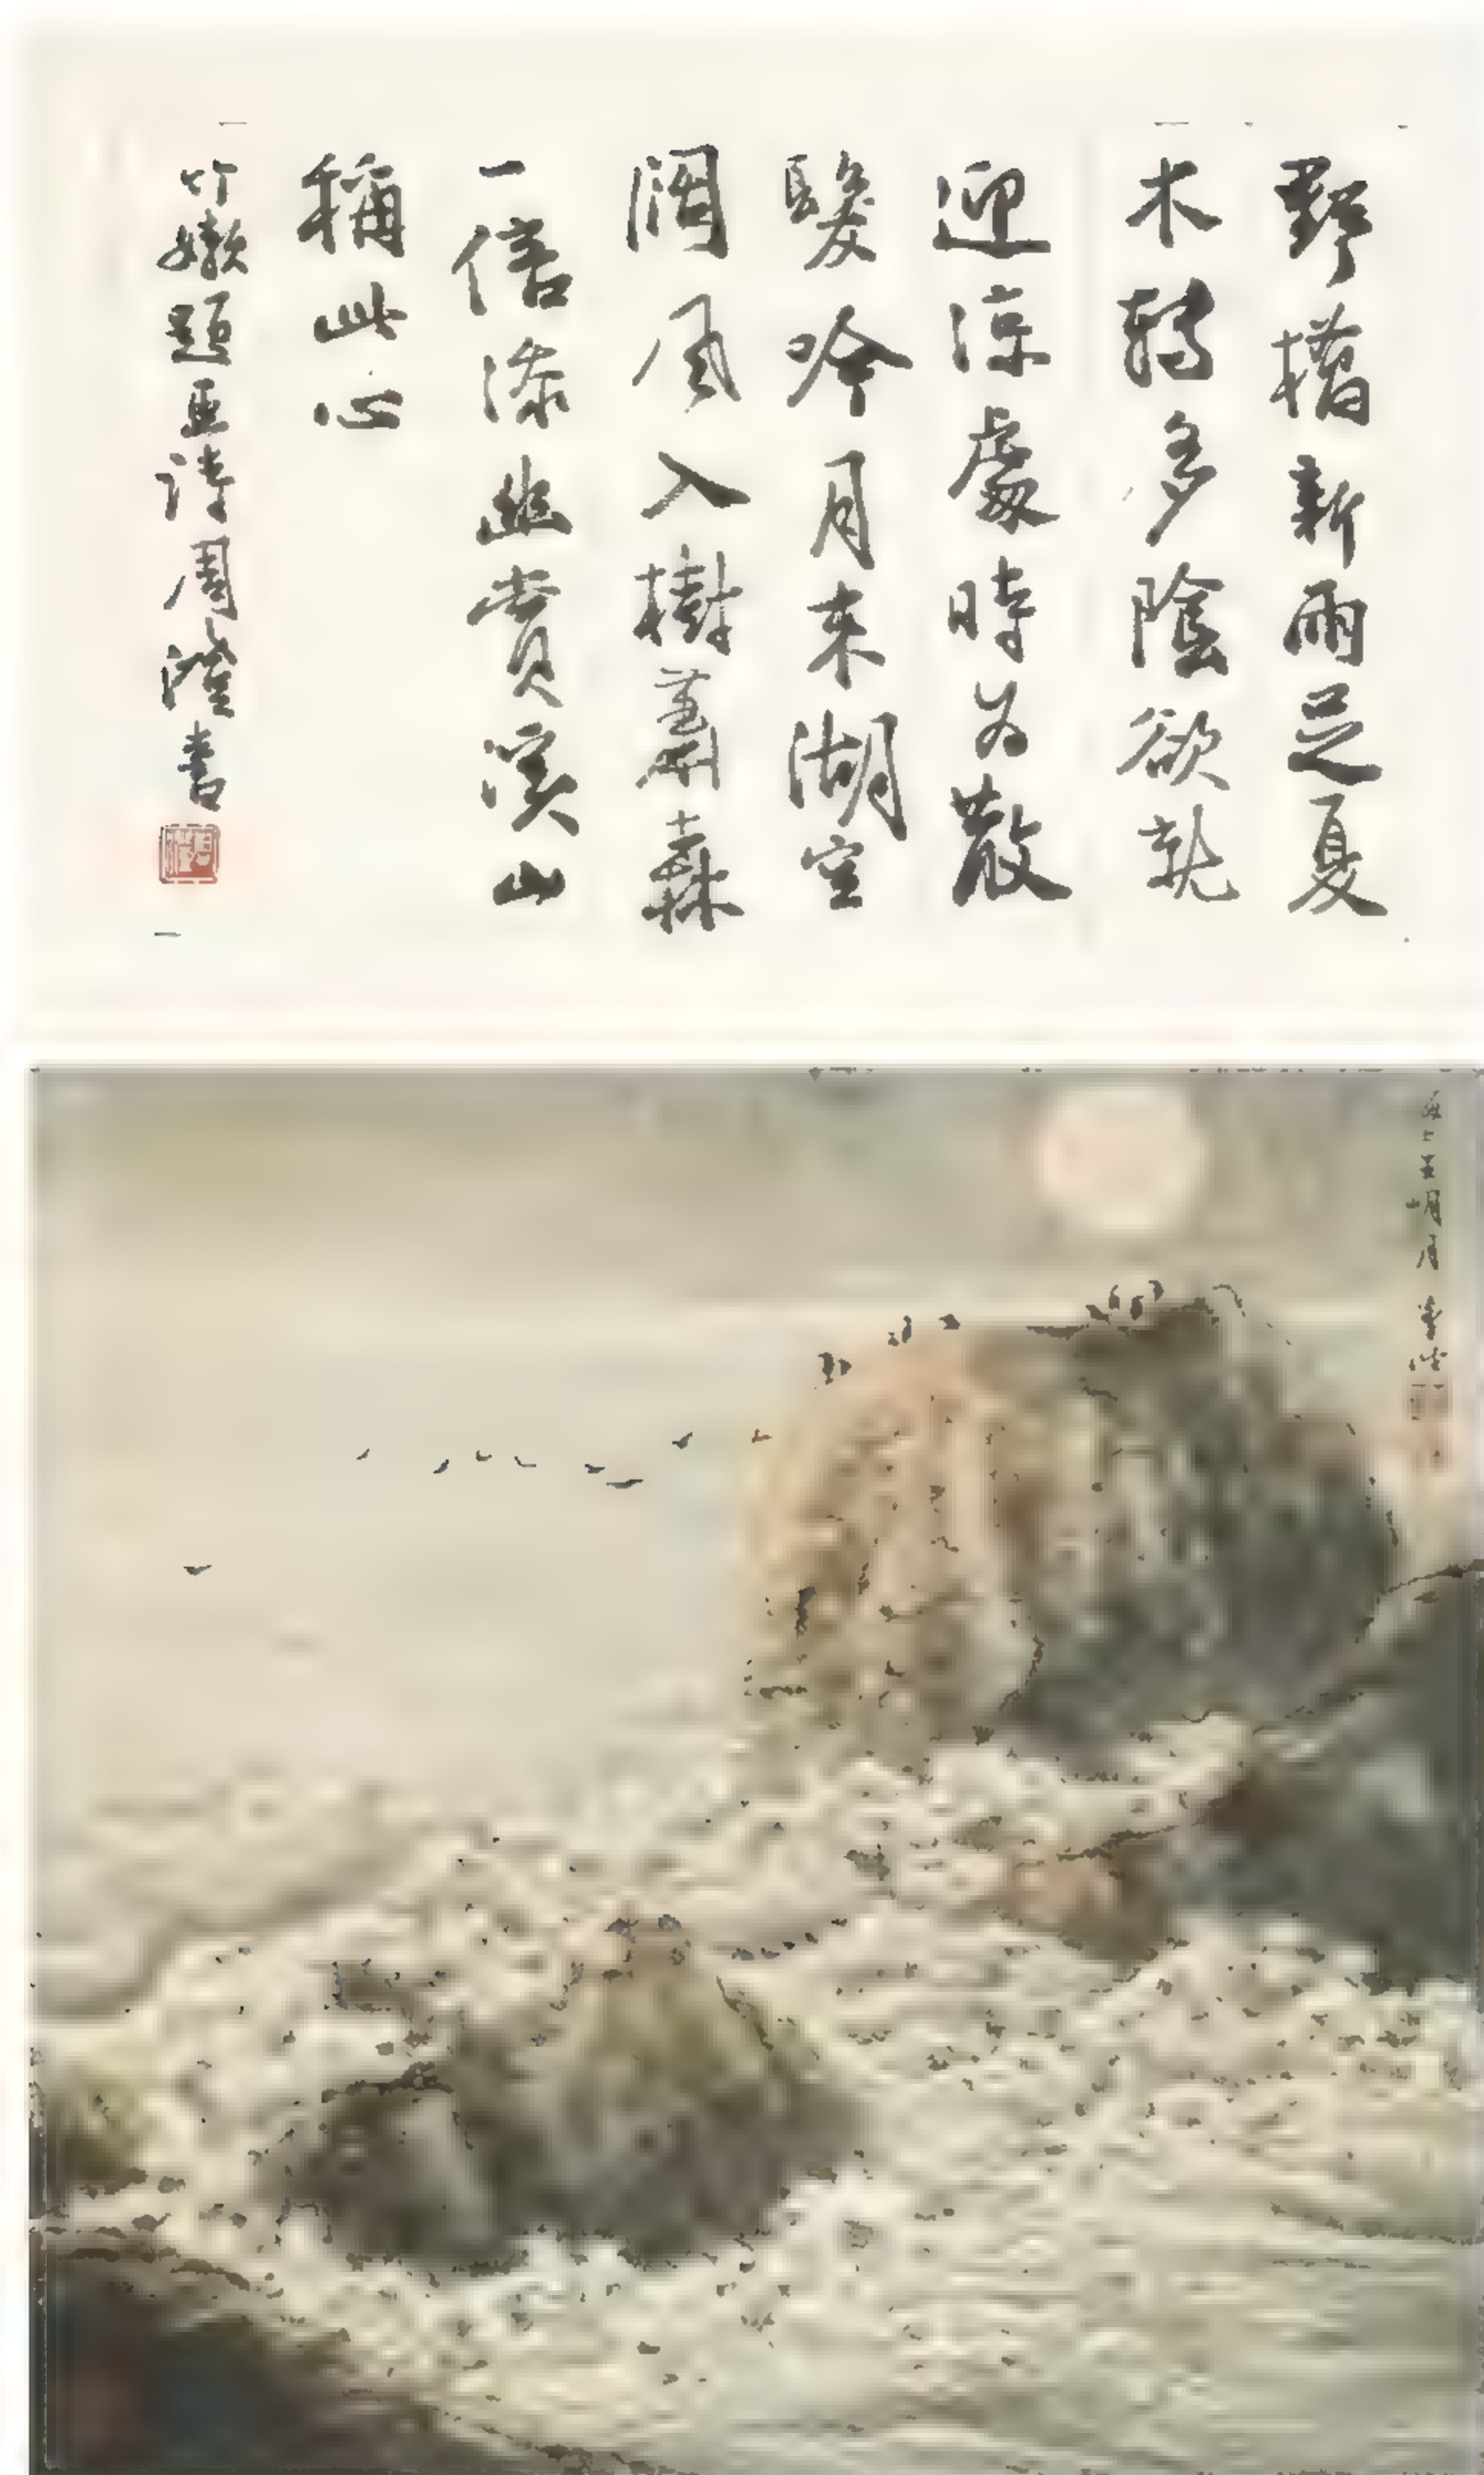 野橋新雨足夏
木轉多陰欲執
迎涼處時為散
髮吟月来湖空
闊風入樹蕭森
一倍添幽賞溪山
稱此心
竹嫩題画詩周澄書
海上王明月